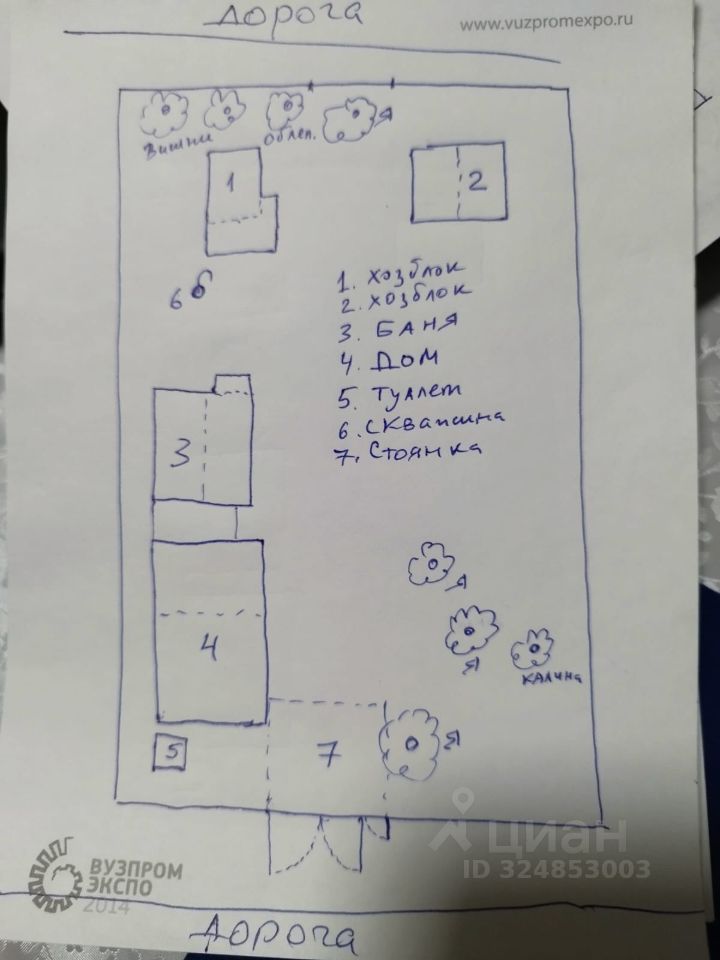 дорога
www.vuzpromexpo.ru
Вишни
Облеп.
Я
1
2
6
1. хозблок
2. хозблок
3. БАНЯ
4. ДОМ
5. Туалет
6. СКважина
7. Стоянка
3
Я
4
Я
Калина
5
7
Я
циан
ID 324853003
ВУЗПРОМ
ЭКСПО
2014
дорога